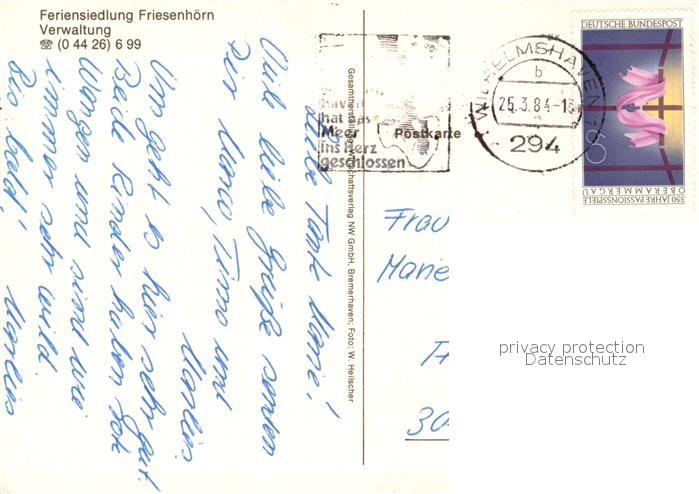 Feriensiedlung Friesenhörn
Verwaltung
☏ (0 44 26) 6 99
Liebe Tante Marie!
Viele liebe Grüße senden
Dir Marco, Timo und
Marlies
Uns geht es hier sehr gut.
Beide Kinder haben rote
Wangen und sind wie
immer sehr wild.
Bis bald! Marlies
schaftsverlag NW GmbH, Bremerhaven; Foto: W. Heilscher
haven
hat das
Meer
ins Herz
geschlossen
Postkarte
WILHELMSHAVEN 1
b
25.3.84-1
294
DEUTSCHE BUNDESPOST
60
OBERAMMERGAU
350 JAHRE PASSIONSSPIELE
Frau
Marie
30
privacy protection
Datenschutz